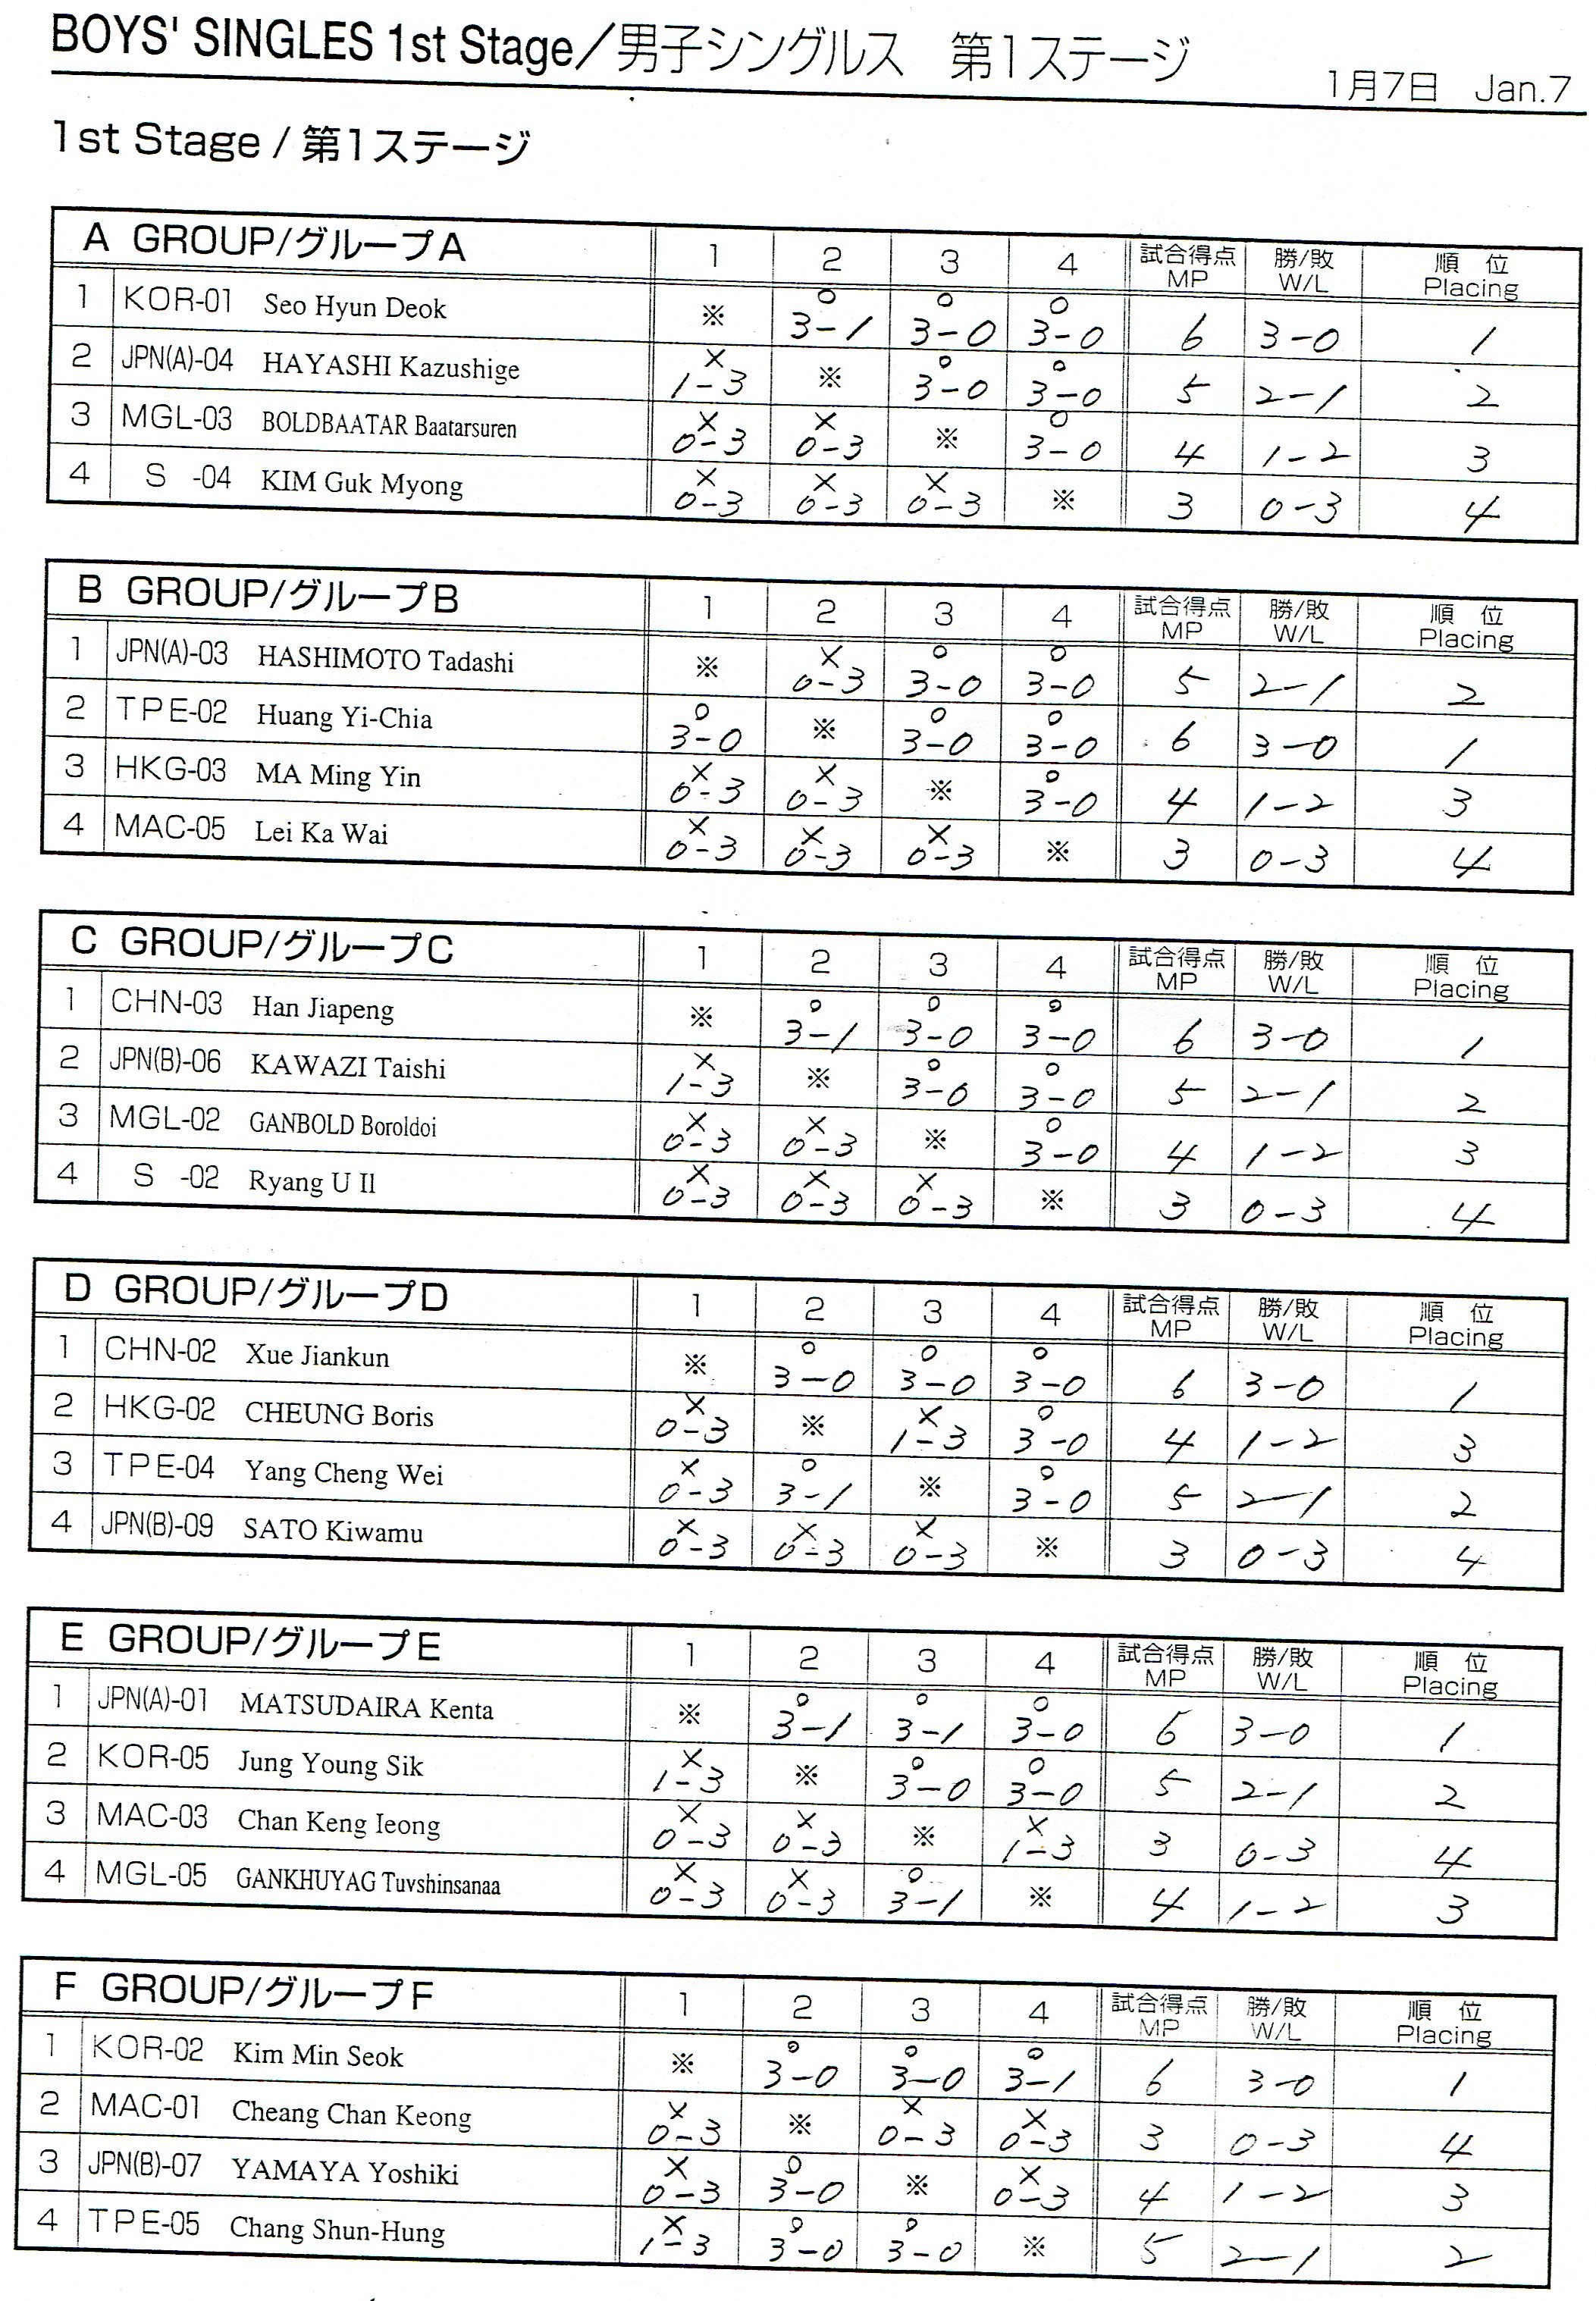 BOYS' SINGLES 1st Stage／男子シングルス　第1ステージ
1月7日　Jan.7
1st Stage / 第1ステージ
A GROUP/グループA 1 2 3 4 試合得点 MP 勝/敗 W/L 順 位 Placing
1 KOR-01 Seo Hyun Deok ※ ○ 3-1 ○ 3-0 ○ 3-0 6 3-0 1
2 JPN(A)-04 HAYASHI Kazushige × 1-3 ※ ○ 3-0 ○ 3-0 5 2-1 2
3 MGL-03 BOLDBAATAR Baatarsuren × 0-3 × 0-3 ※ ○ 3-0 4 1-2 3
4 S -04 KIM Guk Myong × 0-3 × 0-3 × 0-3 ※ 3 0-3 4
B GROUP/グループB 1 2 3 4 試合得点 MP 勝/敗 W/L 順 位 Placing
1 JPN(A)-03 HASHIMOTO Tadashi ※ × 0-3 ○ 3-0 ○ 3-0 5 2-1 2
2 TPE-02 Huang Yi-Chia ○ 3-0 ※ ○ 3-0 ○ 3-0 6 3-0 1
3 HKG-03 MA Ming Yin × 0-3 × 0-3 ※ ○ 3-0 4 1-2 3
4 MAC-05 Lei Ka Wai × 0-3 × 0-3 × 0-3 ※ 3 0-3 4
C GROUP/グループC 1 2 3 4 試合得点 MP 勝/敗 W/L 順 位 Placing
1 CHN-03 Han Jiapeng ※ ○ 3-1 ○ 3-0 ○ 3-0 6 3-0 1
2 JPN(B)-06 KAWAZI Taishi × 1-3 ※ ○ 3-0 ○ 3-0 5 2-1 2
3 MGL-02 GANBOLD Boroldoi × 0-3 × 0-3 ※ ○ 3-0 4 1-2 3
4 S -02 Ryang U Il × 0-3 × 0-3 × 0-3 ※ 3 0-3 4
D GROUP/グループD 1 2 3 4 試合得点 MP 勝/敗 W/L 順 位 Placing
1 CHN-02 Xue Jiankun ※ ○ 3-0 ○ 3-0 ○ 3-0 6 3-0 1
2 HKG-02 CHEUNG Boris × 0-3 ※ × 1-3 ○ 3-0 4 1-2 3
3 TPE-04 Yang Cheng Wei × 0-3 ○ 3-1 ※ ○ 3-0 5 2-1 2
4 JPN(B)-09 SATO Kiwamu × 0-3 × 0-3 × 0-3 ※ 3 0-3 4
E GROUP/グループE 1 2 3 4 試合得点 MP 勝/敗 W/L 順 位 Placing
1 JPN(A)-01 MATSUDAIRA Kenta ※ ○ 3-1 ○ 3-1 ○ 3-0 6 3-0 1
2 KOR-05 Jung Young Sik × 1-3 ※ ○ 3-0 ○ 3-0 5 2-1 2
3 MAC-03 Chan Keng Ieong × 0-3 × 0-3 ※ × 1-3 3 0-3 4
4 MGL-05 GANKHUYAG Tuvshinsanaa × 0-3 × 0-3 ○ 3-1 ※ 4 1-2 3
F GROUP/グループF 1 2 3 4 試合得点 MP 勝/敗 W/L 順 位 Placing
1 KOR-02 Kim Min Seok ※ ○ 3-0 ○ 3-0 ○ 3-1 6 3-0 1
2 MAC-01 Cheang Chan Keong × 0-3 ※ × 0-3 × 0-3 3 0-3 4
3 JPN(B)-07 YAMAYA Yoshiki × 0-3 ○ 3-0 ※ × 0-3 4 1-2 3
4 TPE-05 Chang Shun-Hung × 1-3 ○ 3-0 ○ 3-0 ※ 5 2-1 2